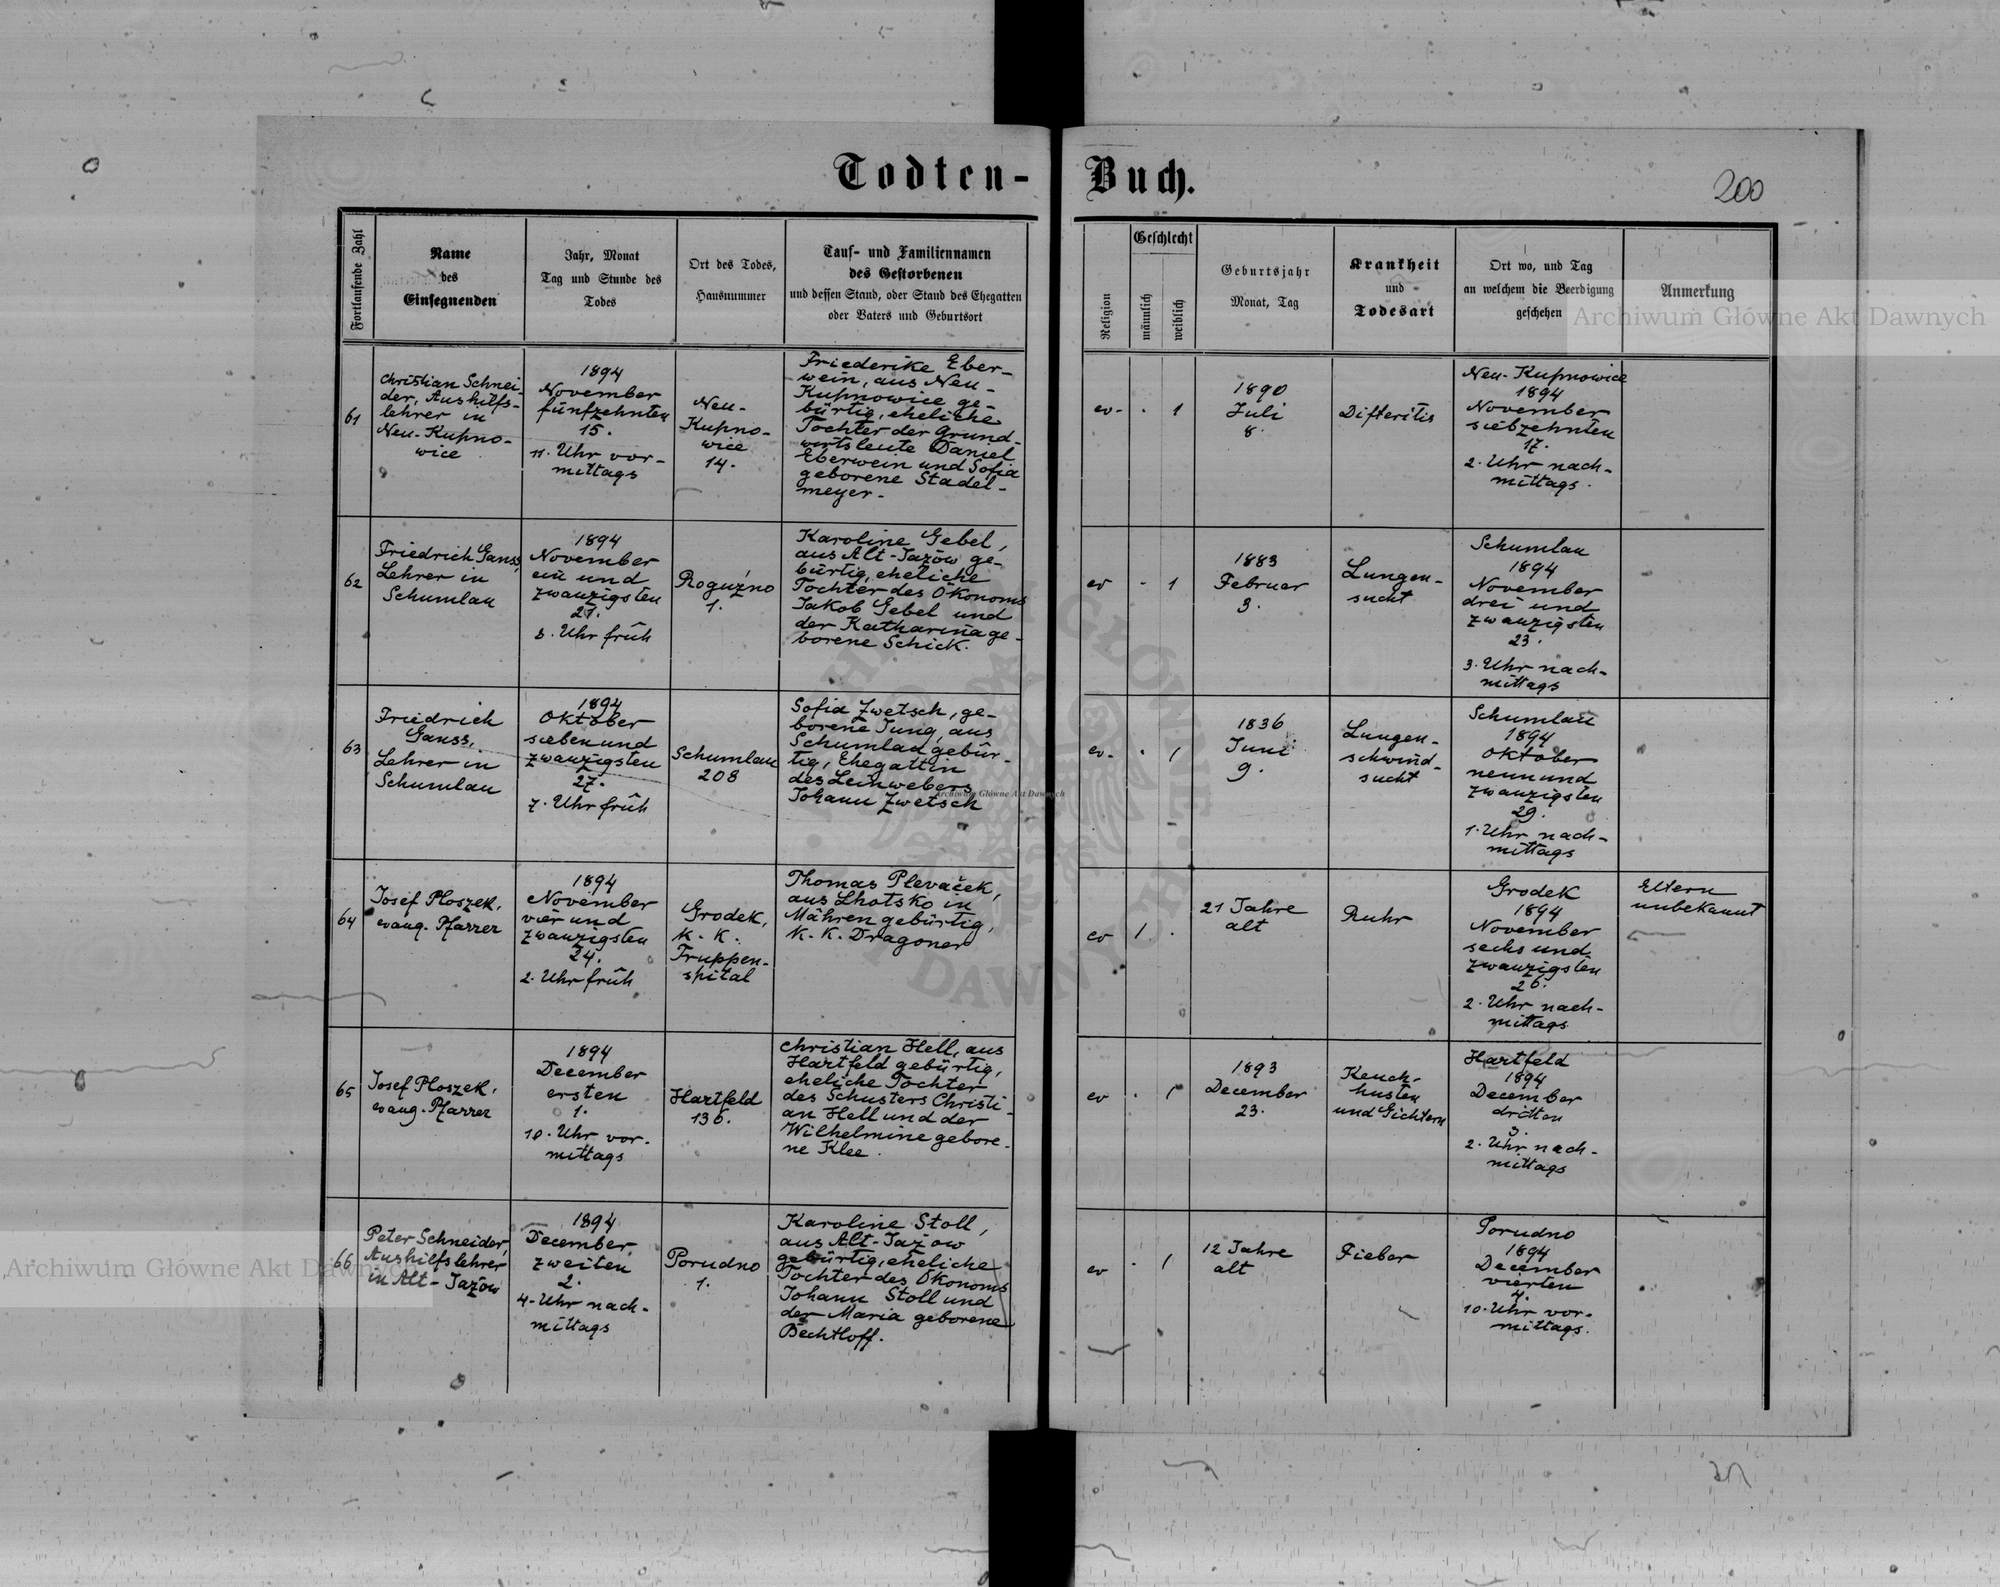 Todten-Buch.
200
Fortlaufende Zahl
Name
des
Einsegnenden
Jahr, Monat
Tag und Stunde des
Todes
Ort des Todes,
Hausnummer
Tauf- und Familiennamen
des Gestorbenen
und dessen Stand, oder Stand des Ehegatten
oder Vaters und Geburtsort
Religion
Geschlecht
männlich
weiblich
Geburtsjahr
Monat, Tag
Krankheit
und
Todesart
Ort wo, und Tag
an welchem die Beerdigung
geschehen
Anmerkung
61
Christian Schnei-
der, Aushilfs-
lehrer in
Neu-Kupno-
wice
1894
November
fünfzehnten
15.
11. Uhr vor-
mittags
Neu-
Kupno-
wice
14.
Friederike Eber-
wein, aus Neu-
Kupnowice ge-
bürtig, eheliche
Tochter der Grund-
wirtsleute Daniel
Eberwein und Sofia
geborene Stadel-
meyer.
ev. · 1
1890
Juli
8.
Difteritis
Neu-Kupnowice
1894
November
siebzehnten
17.
2. Uhr nach-
mittags.
62
Friedrich Ganss,
Lehrer in
Schumlau
1894
November
ein und
zwanzigsten
21.
8. Uhr früh
Roguźno
1.
Karoline Gebel,
aus Alt-Jazów ge-
bürtig, eheliche
Tochter des Ökonoms
Jakob Gebel und
der Katharina ge-
borene Schick.
ev · 1
1883
Februar
3.
Lungen-
sucht
Schumlau
1894
November
drei und
zwanzigsten
23.
3. Uhr nach-
mittags
63
Friedrich
Ganss,
Lehrer in
Schumlau
1894
Oktober
sieben und
zwanzigsten
27.
7. Uhr früh
Schumlau
208
Sofia Zwetsch, ge-
borene Jung, aus
Schumlau gebür-
tig, Ehegattin
des Leinwebers
Johann Zwetsch
ev. · 1
1836
Juni
9.
Lungen-
schwind-
sucht
Schumlau
1894
Oktober
neun und
zwanzigsten
29.
1. Uhr nach-
mittags
64
Josef Ploszek,
evang. Pfarrer
1894
November
vier und
zwanzigsten
24.
2. Uhr früh
Grodek,
K. K.
Truppen-
spital
Thomas Plevaček,
aus Lhotsko in
Mähren gebürtig,
K. K. Dragoner
ev 1. ·
21 Jahre
alt
Ruhr
Grodek
1894
November
sechs und
zwanzigsten
26.
2. Uhr nach-
mittags
Eltern
unbekannt
65
Josef Ploszek,
evang. Pfarrer
1894
December
ersten
1.
10. Uhr vor-
mittags
Hartfeld
136.
Christian Hell, aus
Hartfeld gebürtig,
eheliche Tochter
des Schusters Christi-
an Hell und der
Wilhelmine gebore-
ne Klee.
ev · 1
1893
December
23.
Keuch-
husten
und Gichtern
Hartfeld
1894
December
dritten
3.
2. Uhr nach-
mittags
66
Peter Schneider,
Aushilfslehrer
in Alt-Jazów
1894
December
zweiten
2.
4. Uhr nach-
mittags
Porudno
1.
Karoline Stoll,
aus Alt-Jazow
gebürtig, eheliche
Tochter des Ökonoms
Johann Stoll und
der Maria geborene
Bechtloff.
ev · 1
12 Jahre
alt
Fieber
Porudno
1894
December
vierten
4.
10. Uhr vor-
mittags.
Archiwum Główne Akt Dawnych
Archiwum Główne Akt Dawnych
Archiwum Główne Akt Dawnych